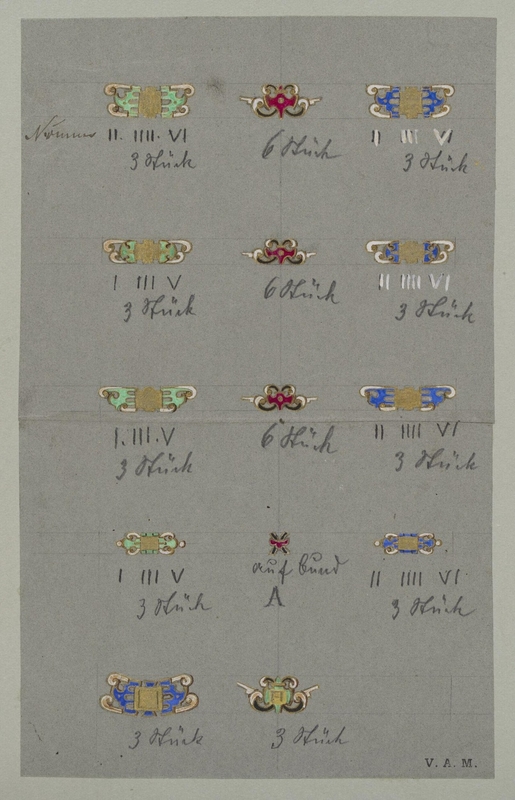 Nummer II. IIII. VI
3 Stück
6 Stück
II III V
3 Stück
I III V
3 Stück
6 Stück
II IIII VI
3 Stück
I. III. V
3 Stück
6 Stück
II IIII VI
3 Stück
I III V
3 Stück
auf Bund
A
II IIII VI.
3 Stück
3 Stück
3 Stück
V. A. M.